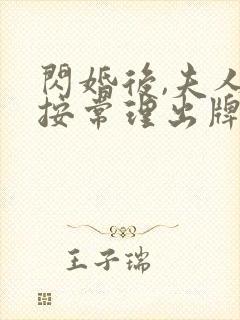 閃婚後,夫人
按常理出牌
王子瑞